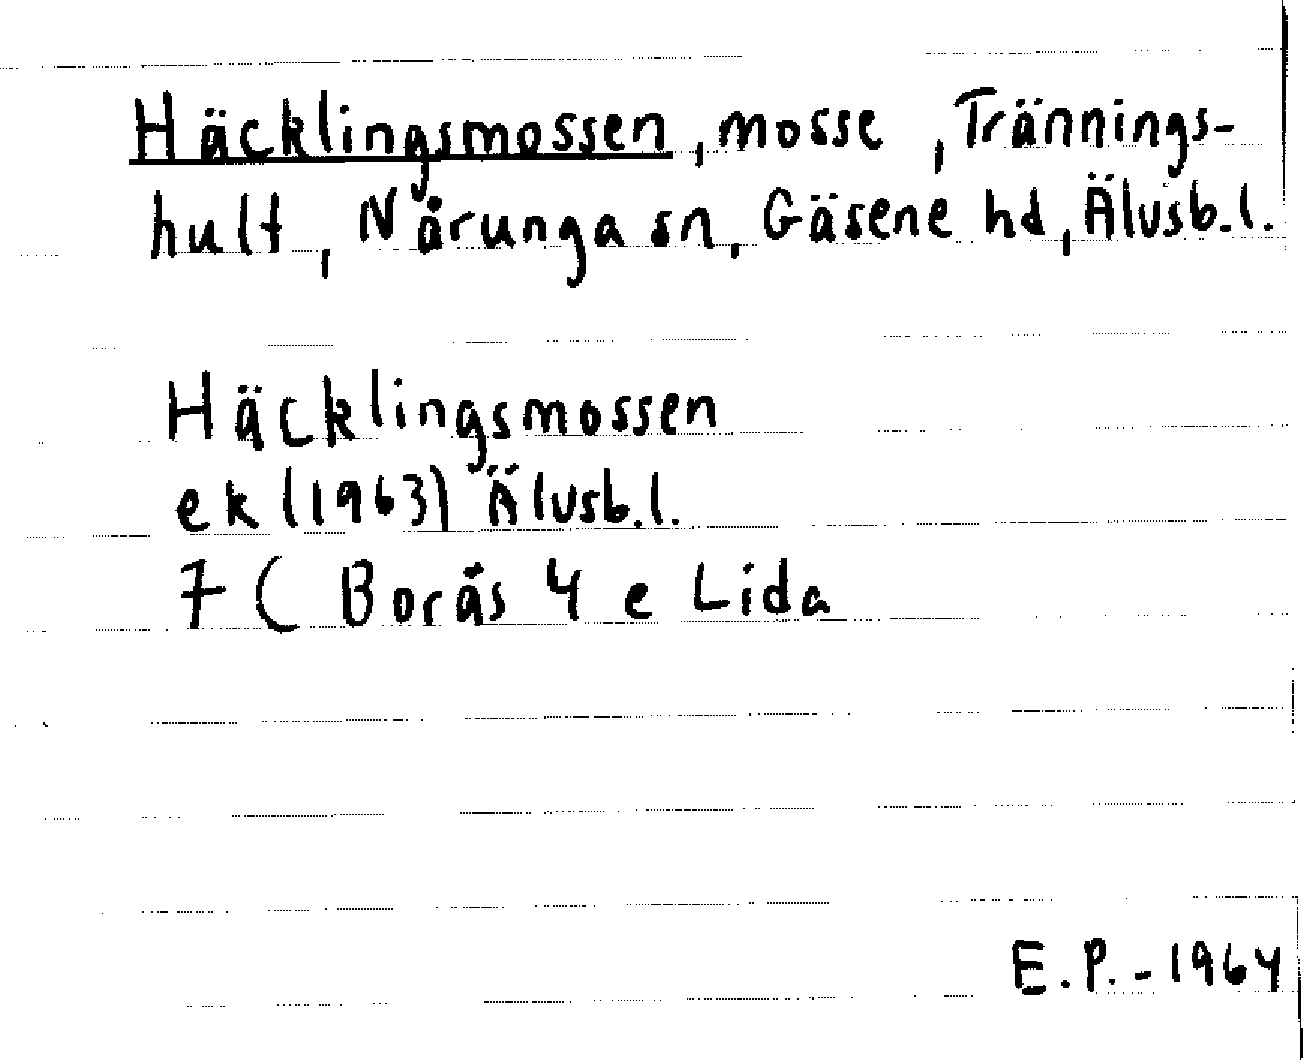 Häcklingsmossen, mosse, Trännings-
hult, Nårunga sn, Gäsene hd, Älvsb.l.
Häcklingsmossen
ek (1963) Älvsb.l.
7C Borås 4 e Lida
E.P.-1964